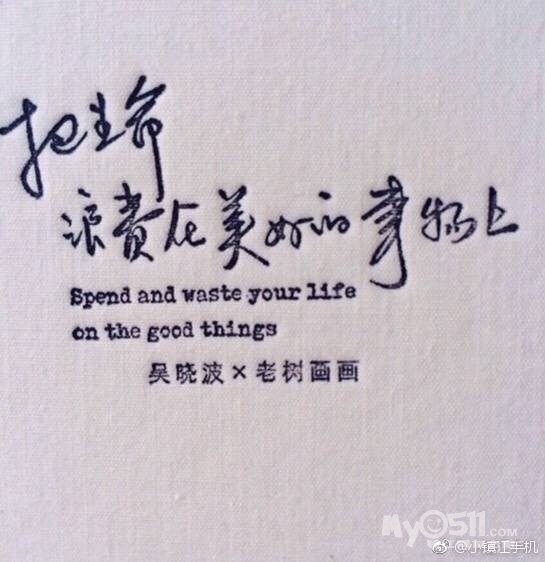 把生命
浪费在美好的事物上
Spend and waste your life
on the good things
吴晓波×老树画画
My0511.com
@小镇江手机